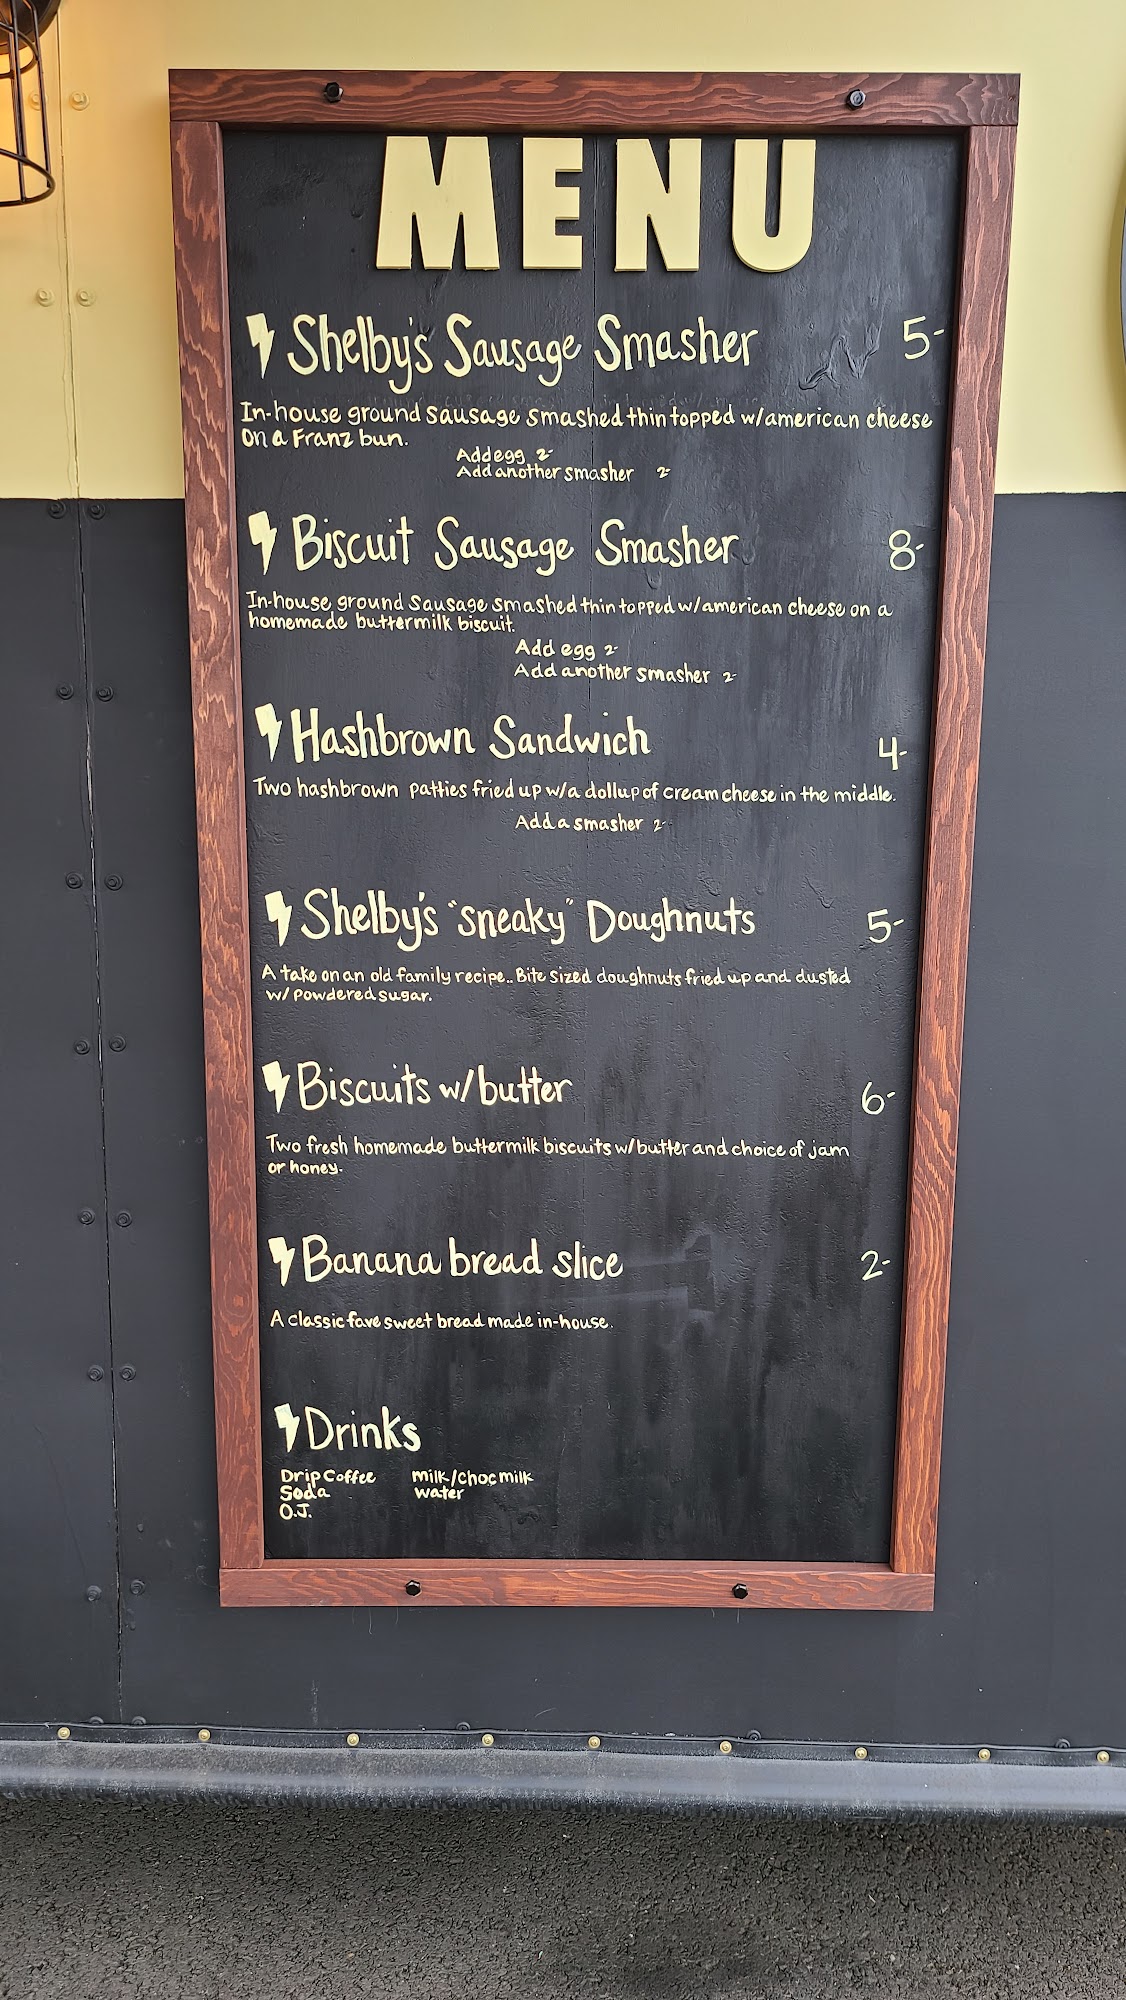 MENU
Shelby's Sausage Smasher 5-
In-house ground sausage smashed thin topped w/american cheese
on a Franz bun.
Add egg 2-
Add another smasher 2-
Biscuit Sausage Smasher 8-
In-house ground sausage smashed thin topped w/american cheese on a
homemade buttermilk biscuit.
Add egg 2-
Add another smasher 2-
Hashbrown Sandwich 4-
Two hashbrown patties fried up w/a dollup of cream cheese in the middle.
Add a smasher 2-
Shelby's "sneaky" Doughnuts 5-
A take on an old family recipe.. Bite sized doughnuts fried up and dusted
w/ powdered sugar.
Biscuits w/butter 6-
Two fresh homemade buttermilk biscuits w/butter and choice of jam
or honey.
Banana bread slice 2-
A classic fave sweet bread made in-house.
Drinks
Drip Coffee milk/choc milk
Soda water
O.J.